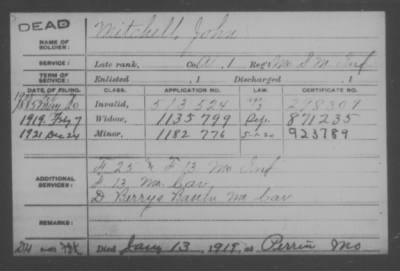 DEAD
NAME OF SOLDIER: Mitchell, John
SERVICE: Late rank, Co. , 1 Reg't Mo S M Inf
TERM OF SERVICE: Enlisted , 1 Discharged , 1
DATE OF FILING. CLASS. APPLICATION NO. LAW. CERTIFICATE NO.
Invalid, 513 524 298304
1919, Feby 7 Widow, 1135 799 871235
1921 Dec 24 Minor, 1182 776 5-1-20 923789
ADDITIONAL SERVICES:
F 25 & F 13 Mo Inf
F 13 Mo Cav
D Berrys Battn Mo Cav
REMARKS:
Died Jany 13, 1919, at Perrin Mo